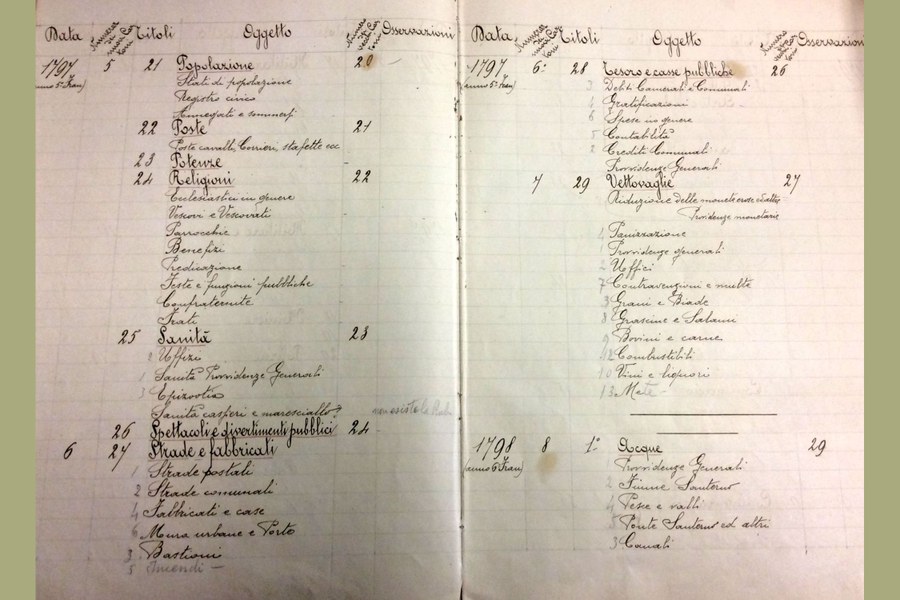 Data Numero di mazzi Car toni Titoli Oggetto Osservazioni
1797 5 21 Popolazione 20
(anno 5° Fran) Stati di popolazione
Registro civico
Annegati e sommersi
22 Poste 21
Posta cavalli, Corrieri, staffette ecc
23 Potenze
24 Religioni 22
Ecclesiastici in genere
Vescovi e Vescovati
Parrocchie
Benefizi
Predicazione
Feste e funzioni pubbliche
Confraternite
Frati
25 Sanità 23
2 Uffizi
1 Sanità Provvidenze Generali
3 Epizootia
Sanità casperi e maresciallo? non esiste la
26 Spettacoli e divertimenti pubblici 24
6 27 Strade e fabbricati
1 Strade postali
2 Strade comunali
4 Fabbricati e case
6 Mura urbane e Porte
3 Bastioni
5 Incendi –
Data Titoli Oggetto Osservazioni
1797 6° 28 Tesoro e casse pubbliche 26
(anno 5° Fran) 3 Debiti Camerali e Comunali
Gratificazioni
6 Spese in genere
5 Contabilità
2 Crediti Comunali
Provvidenze Generali
7 29 Vettovaglie 27
Riduzione delle monete erose ed altre
Providenze monetarie
Panizzazione
Providenze generali
2 Uffici
7 Contravenzioni e multe
3 Grani e Biade
8 Grascine e Salami
9 Bovini e carne
12 Combustibili
10 Vini e liquori
13 Mete
1798 8 1° Acque 29
(anno 6 Fran) Provvidenze Generali
2 Fiume Santerno
4 Pesce e valli
5 Ponte Santerno ed altri
3 Canali